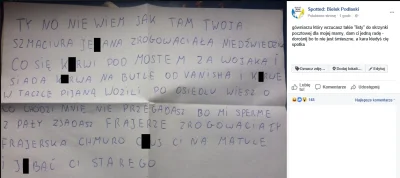 TY NO NIE WIEM JAK TAM TWOJA
SZMACIURA JE ANA ZROGOWACIAŁA NIEDŹWIEDZ
CO SIĘ K RWI POD MOSTEM ZA WOJAKA I
SIADA K RWA NA BUTLE OD VANISHA I K RWE
W TACZCE PIJANĄ WOZILI PO OSIEDLU WIESZ O
CO CHODZI NIE PRZEGADASZ BO MI SPERME
Z PAŁY ZJADASZ FRAJERZE ZROGOWACIAŁY
FRAJERSKO CHMURO C UJ CI NA MATULE
I J BAĆ CI STAREGO
Spotted: Bielsk Podlaski
Polubienie strony · 1 godz.
gówniarzu który wrzucasz takie "listy" do skrzynki
pocztowej dla mojej mamy, dam ci jedną radę -
dorośnij bo to nie jest śmieszne, a kara kiedyś cię
spotka
Oznacz zdję... Dodaj lokali... Edytuj
Lubię to! Komentarze Udostępnij
Najlepsze komentarze